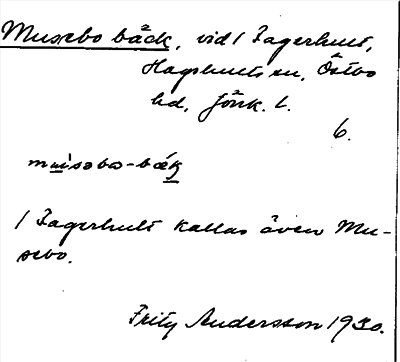 Musebo bäck, vid / Fagerhult,
Hagshults sn, Östbo
hd, Jönk. l.
6.
musəbo-bäk
/ Fagerhult kallas även Mu-
sebo.
Fritz Andersson 1930.